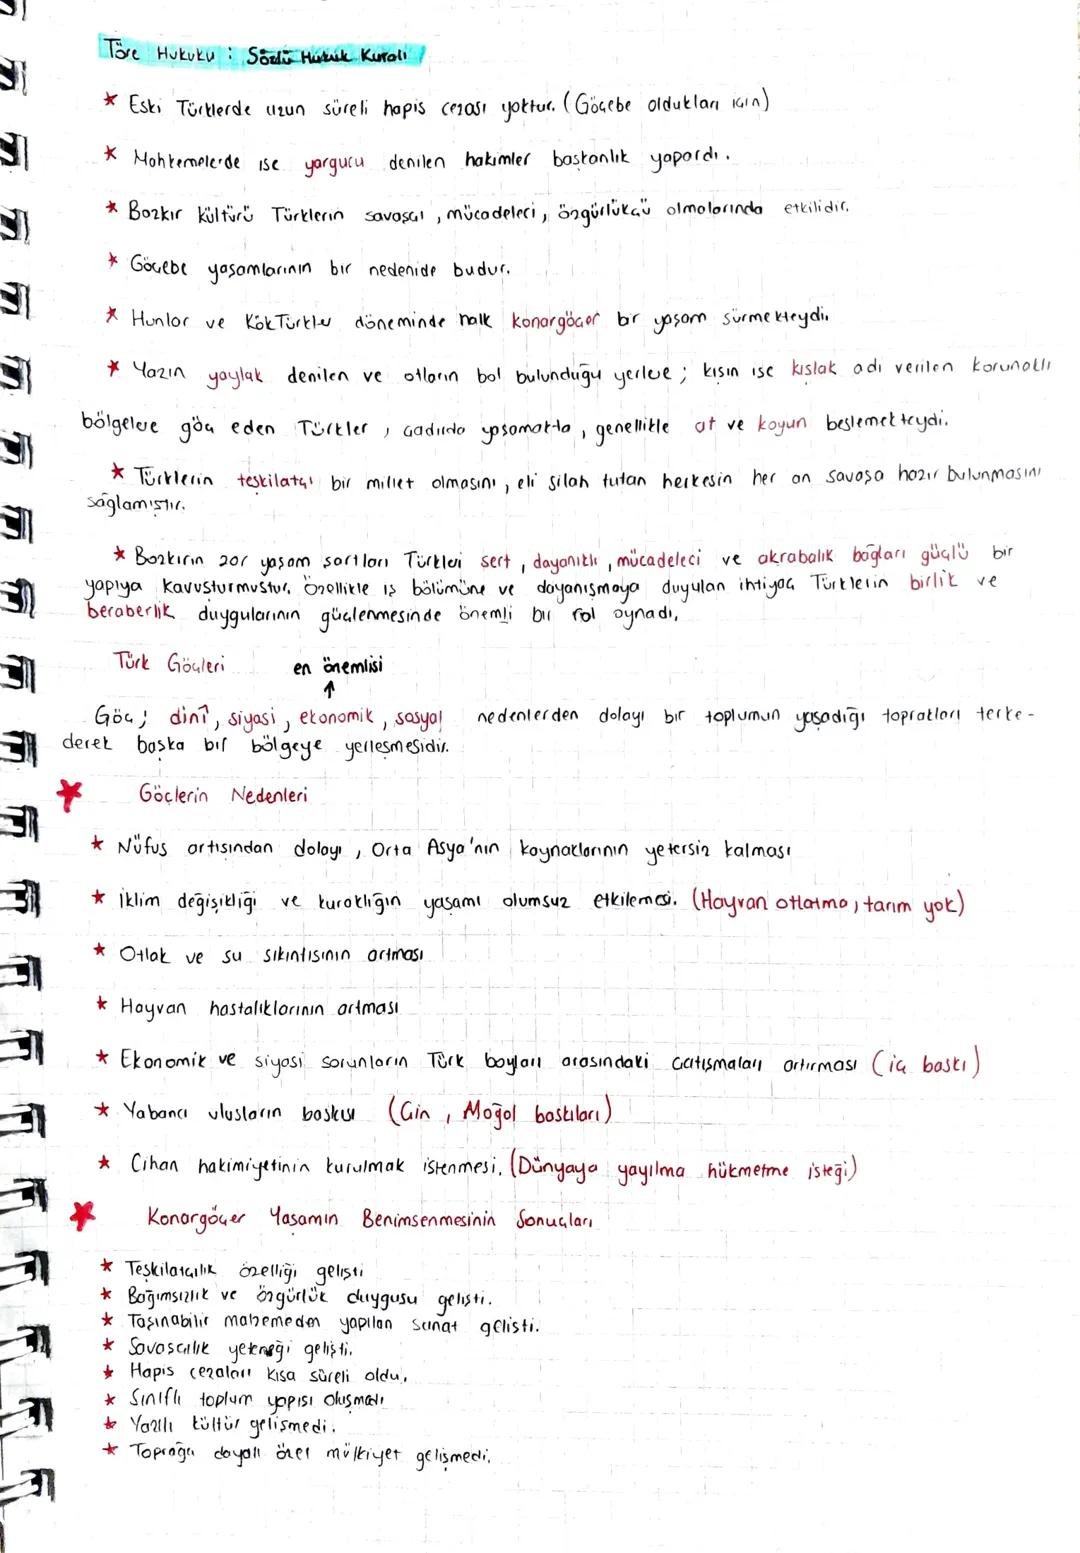 Töre Hukuku : Sözlü Hukuk Kuralı
* Eski Türklerde uzun süreli hapis cezası yoktur. (Göçebe oldukları için)
* Mahkemelerde ise yargucu denilen hakimler başkanlık yapardı.
* Bozkır kültürü Türklerin savaşçı, mücadeleci, özgürlükçü olmalarında etkilidir.
* Göçebe yaşamlarının bir nedenide budur.
* Hunlar ve KökTürkler döneminde halk konargöçer bir yaşam sürmekteydi.
* Yazın yaylak denilen ve otların bol bulunduğu yerlere; kışın ise kışlak adı verilen korunaklı
bölgelere göç eden Türkler, çadırda yaşamakta, genellikle at ve koyun beslemekteydi.
* Türklerin teşkilatçı bir millet olmasını, eli silah tutan herkesin her an savaşa hazır bulunmasını
sağlamıştır.
* Bozkırın zor yaşam şartları Türkleri sert, dayanıklı, mücadeleci ve akrabalık bağları güçlü bir
yapıya kavuşturmuştur. Özellikle iş bölümüne ve dayanışmaya duyulan ihtiyaç Türklerin birlik ve
beraberlik duygularının güçlenmesinde önemli bir rol oynadı.
Türk Göçleri en önemlisi
↑
Göç; dinî, siyasi, ekonomik, sosyal nedenlerden dolayı bir toplumun yaşadığı toprakları terke-
derek başka bir bölgeye yerleşmesidir.
* Göçlerin Nedenleri
* Nüfus artışından dolayı, Orta Asya'nın kaynaklarının yetersiz kalması
* İklim değişikliği ve kuraklığın yaşamı olumsuz etkilemesi. (Hayvan otlatma, tarım yok)
* Otlak ve su sıkıntısının artması
* Hayvan hastalıklarının artması
* Ekonomik ve siyasi sorunların Türk boyları arasındaki çatışmaları artırması (iç baskı)
* Yabancı ulusların baskısı (Çin, Moğol baskıları)
* Cihan hakimiyetinin kurulmak istenmesi. (Dünyaya yayılma hükmetme isteği)
* Konargöçer Yaşamın Benimsenmesinin Sonuçları
* Teşkilatçılık özelliği gelişti
* Bağımsızlık ve özgürlük duygusu gelişti.
* Taşınabilir malzemeden yapılan sanat gelişti.
* Savaşçılık yeteneği gelişti.
* Hapis cezaları kısa süreli oldu.
* Sınıflı toplum yapısı oluşmadı
* Yazılı kültür gelişmedi.
* Toprağa dayalı özel mülkiyet gelişmedi.